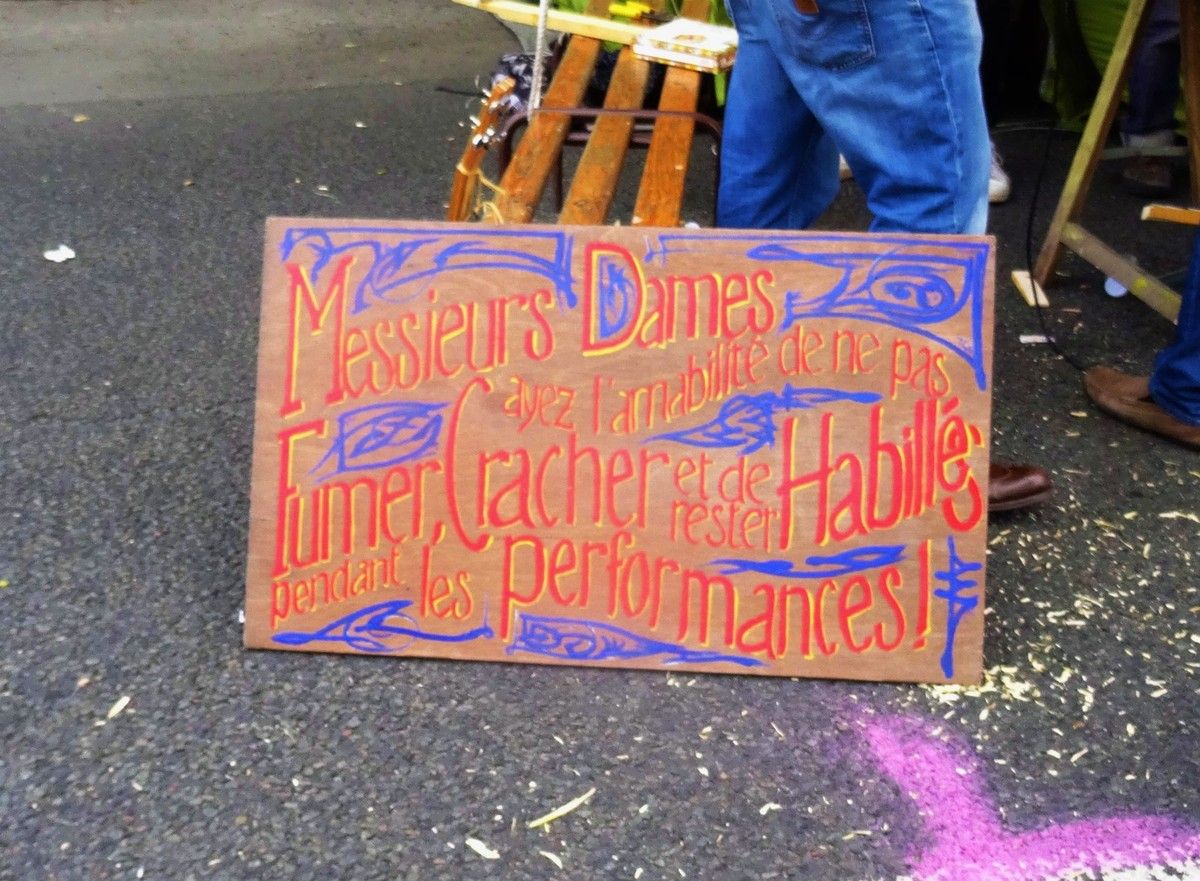 Messieurs Dames
ayez l'amabilité de ne pas
Fumer, Cracher et de rester Habillés
pendant les performances!